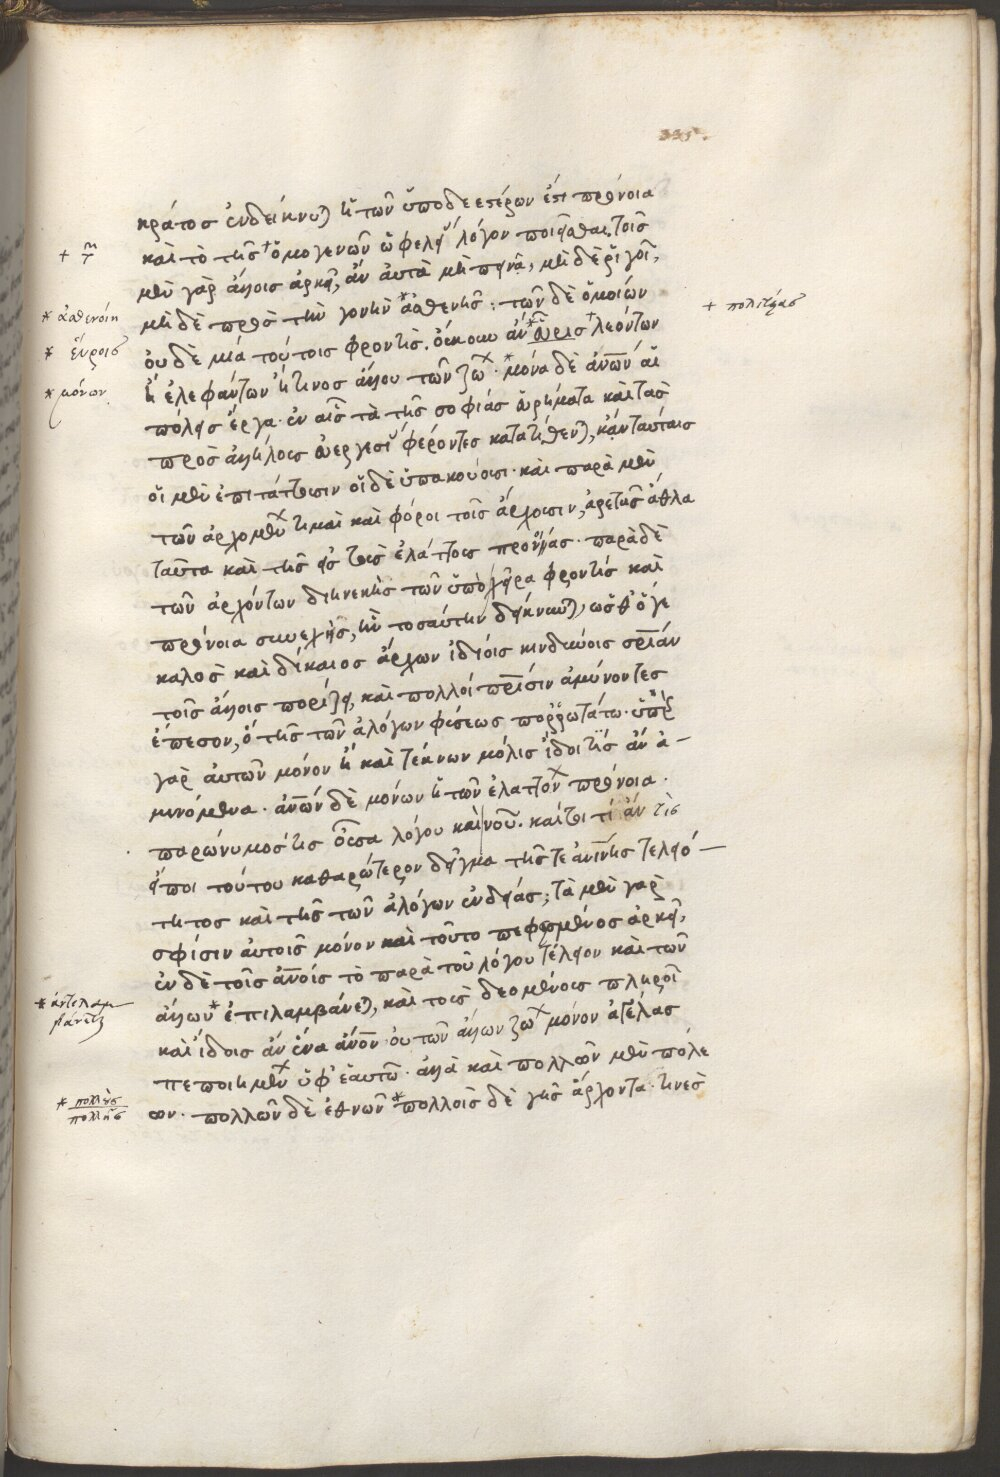 335.
κράτος ἐνδείκνυται ἡ τῶν ὑποδεεστέρων ἐστὶ πρόνοια
καὶ τὸ τῆς + ὁμογενῶν ὠφελείας λόγον ποιεῖσθαι. τοῖς
+ τῶν
μὲν γὰρ ἄλλοις ἀρκεῖ, ἂν αὐτὰ μὴ πεινᾷ, μὴ δὲ ῥιγοῖ,
μὴ δὲ πρὸς τὴν γονὴν * ἀσθενῇς: τῶν δὲ ὁμοίων
* ἀσθενοίη
+ πολιτείας
οὐδὲ μία τούτοις φροντίς. οὔκουν ἂν * εὗρις + λεόντων
* εὕροις
ἢ ἐλεφάντων ἤ τινος ἄλλου τῶν ζώων. * μόνα δὲ ἀνῶν αἱ
* μόνων
πόλεις ἔργα. ἐν αἷς τὰ τῆς σοφίας εὑρήματα καὶ τὰς
πρὸς ἀλλήλους εὐεργεσίας φέροντες κατατίθενται, κἀνταύταις
οἱ μὲν ἐπιτάττουσιν οἱ δὲ ὑπακούουσι. καὶ παρὰ μὲν
τῶν ἀρχομένων τιμαὶ καὶ φόροι τοῖς ἄρχουσιν, ἀρετῆς ἆθλα
ταῦτα καὶ τῆς εἰς τοὺς ἐλάττους προνοίας. παρὰ δὲ
τῶν ἀρχόντων διηνεκὴς τῶν ὑπὸ χεῖρα φροντὶς καὶ
πρόνοια συνεχής, ἣν τοσαύτην δείκνυνται, ὥσθ' ὅγε
καλὸς καὶ δίκαιος ἄρχων ἰδίοις κινδύνοις σρίαν
τοῖς ἄλλοις πορίζει, καὶ πολλοὶ πρίσιν ἀμύνοντες
ἔπεσον, ὃ τῆς τῶν ἀλόγων φύσεως πορρωτάτω. ὑπὲρ
γὰρ αὐτῶν μόνον ἢ καὶ τέκνων μόλις ἴδοι τίς ἂν ἀ-
μυνόμενα. ἀνων δὲ μόνων ἡ τῶν ἐλαττόνων πρόνοια.
παρώνυμός τις οὖσα λόγου καὶ νοῦ. καίτοι τί ἄν τις
εἴποι τούτου καθαρώτερον δεῖγμα τῆς τε ἀνίνης τελειό-
τητος καὶ τῆς τῶν ἀλόγων ἐνδείας; τὰ μὲν γὰρ
σφίσιν αὐτοῖς μόνον καὶ τοῦτο πεφεισμένως ἀρκεῖ,
ἐν δὲ τοῖς ἀνοις τὸ παρὰ τοῦ λόγου τέλειον καὶ τῶν
ἄλλων * ἐπιλαμβάνεται, καὶ τοὺς δεομένους πληροῖ
* ἀντιλαμ
βάνεται
καὶ ἴδοις ἂν ἕνα ἄνον οὐ τῶν ἄλλων ζώων μόνον ἀγέλας
πεποιημένον ὑφ' ἑαυτῷ. ἀλλὰ καὶ πολλῶν μὲν πόλε
ων. πολλῶν δὲ ἐθνῶν * πολλοὶς δὲ γῆς ἄρχοντα. τινὲς
* πολλὴς
πολλῆς